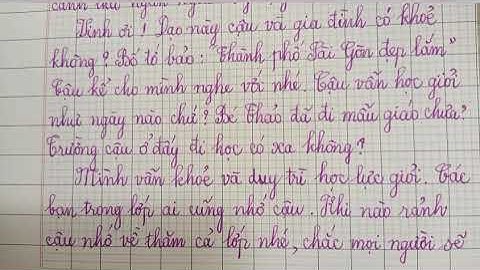 Vinh ơi! Dạo này cậu và gia đình có khoẻ
không? Bố tớ bảo: Thành phố Sài Gòn đẹp lắm"
Cậu kể cho mình nghe với nhé. Cậu vẫn học giỏi
như ngày nào chứ? Bé Thảo đã đi mẫu giáo chưa?
Trường cậu ở đấy đi học có xa không?
Mình vẫn khoẻ và duy trì học lực giỏi. Các
bạn trong lớp ai cũng nhớ cậu. Khi nào rảnh
cậu nhớ về thăm cả lớp nhé, chắc mọi người sẽ